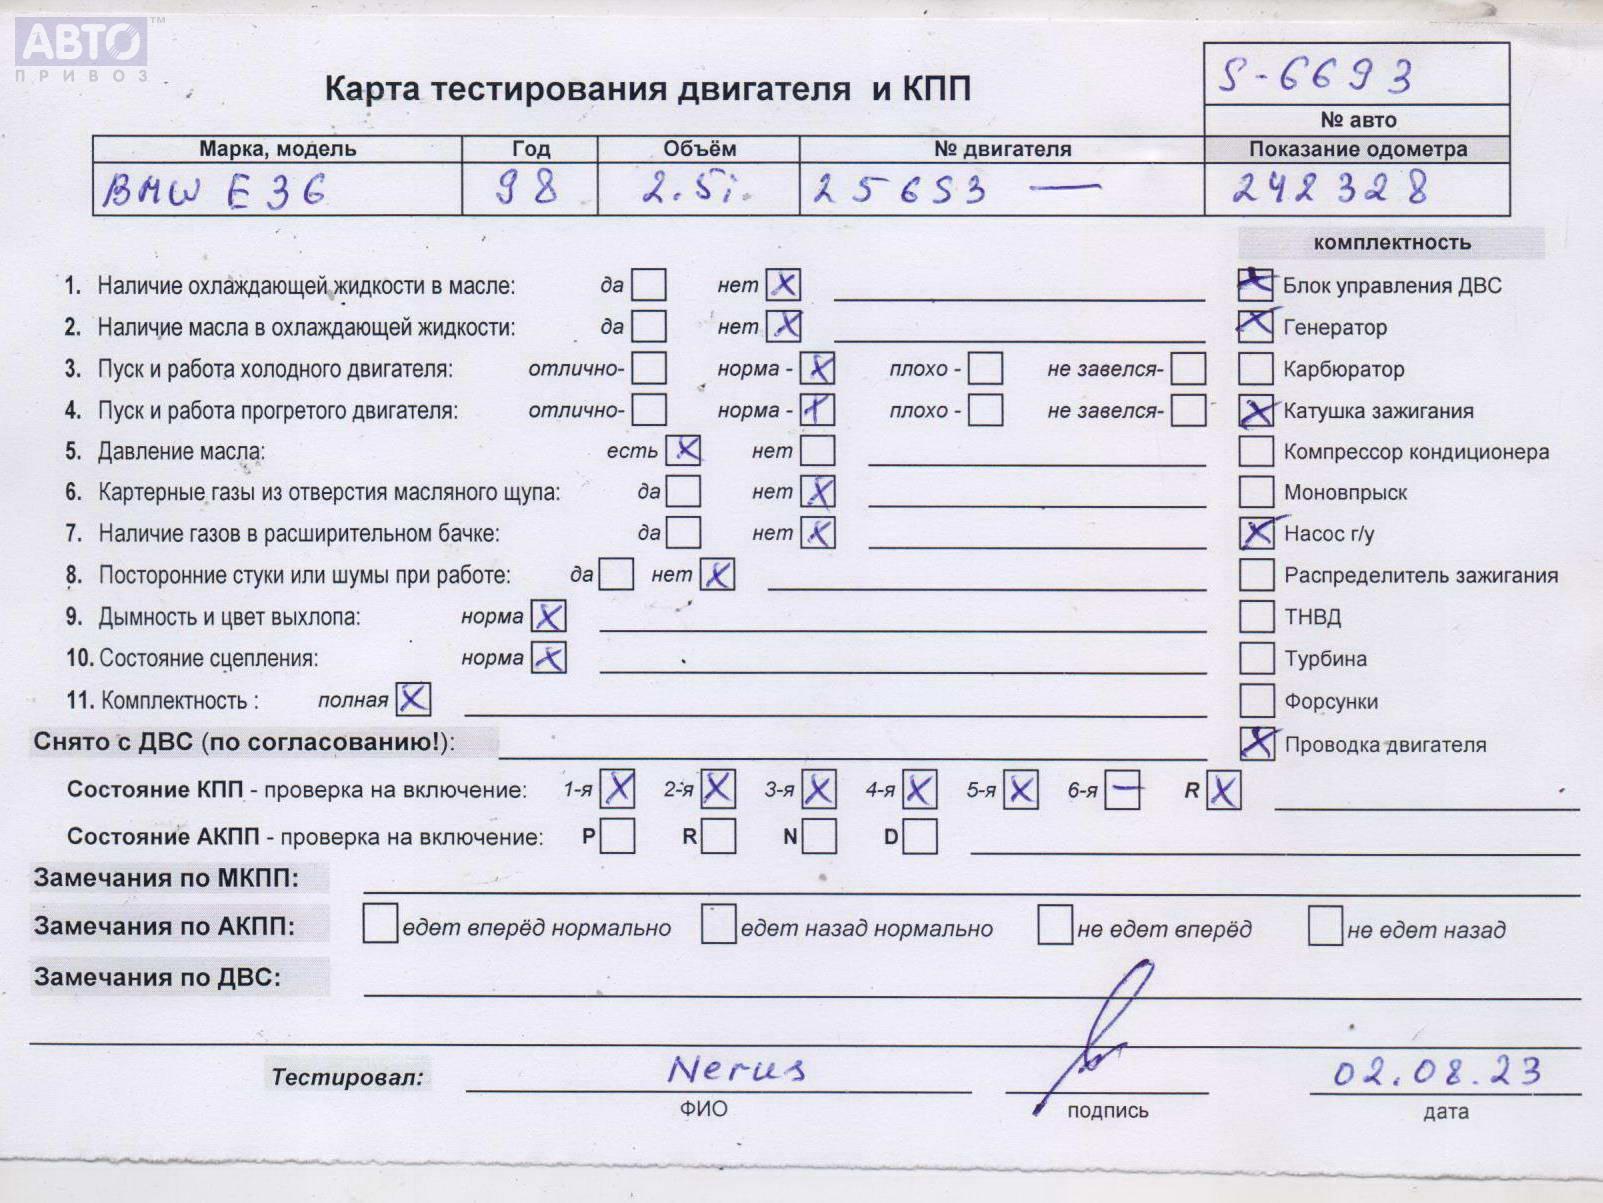 АВТО ™
ПРИВОЗ
S-6693
Карта тестирования двигателя и КПП
№ авто
Марка, модель Год Объём № двигателя Показание одометра
BMW E36 98 2.5i. 256S3 — 242328
комплектность
1. Наличие охлаждающей жидкости в масле: да нет X Блок управления ДВС
2. Наличие масла в охлаждающей жидкости: да нет X Генератор
3. Пуск и работа холодного двигателя: отлично- норма - X плохо - не завелся- Карбюратор
4. Пуск и работа прогретого двигателя: отлично- норма - X плохо - не завелся- X Катушка зажигания
5. Давление масла: есть X нет Компрессор кондиционера
6. Картерные газы из отверстия масляного щупа: да нет X Моновпрыск
7. Наличие газов в расширительном бачке: да нет X X Насос г/у
8. Посторонние стуки или шумы при работе: да нет X Распределитель зажигания
9. Дымность и цвет выхлопа: норма X ТНВД
10. Состояние сцепления: норма X Турбина
11. Комплектность : полная X Форсунки
Снято с ДВС (по согласованию!): X Проводка двигателя
Состояние КПП - проверка на включение: 1-я X 2-я X 3-я X 4-я X 5-я X 6-я — R X
Состояние АКПП - проверка на включение: P R N D
Замечания по МКПП:
Замечания по АКПП: едет вперёд нормально едет назад нормально не едет вперёд не едет назад
Замечания по ДВС:
Тестировал: Nerus 02.08.23
ФИО подпись дата